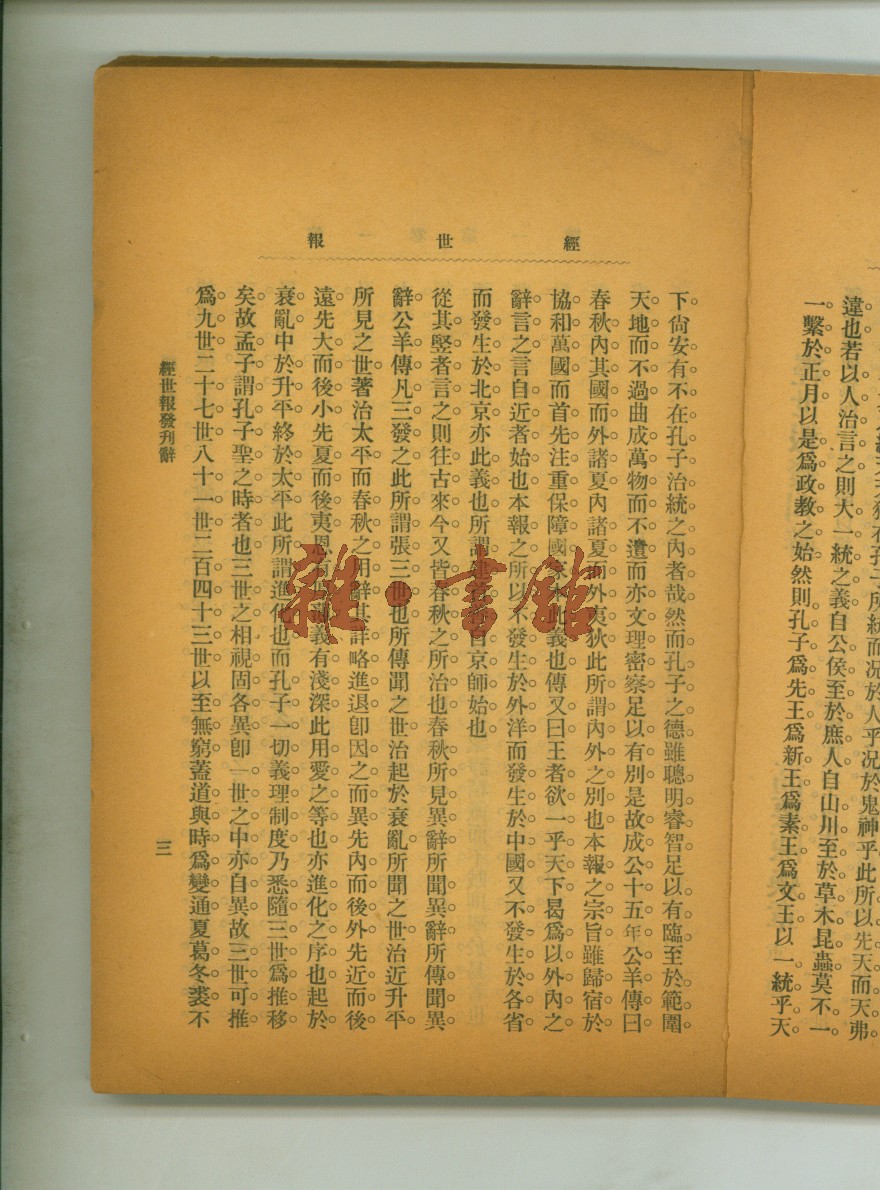 孔子所統而况於人乎况於鬼神乎此所以先天而天弗
違也若以人治言之則大一統之義自公侯至於庶人自山川至於草木昆蟲莫不一
一繫於正月以是爲政教之始然則孔子爲先王爲新王爲素王爲文王以一統乎天
經世報
下尙安有不在孔子治統之內者哉然而孔子之德雖聰明睿智足以有臨至於範圍
天地而不過曲成萬物而不遺而亦文理密察足以有別是故成公十五年公羊傳曰
春秋內其國而外諸夏內諸夏而外夷狄此所謂內外之別也本報之宗旨雖歸宿於
協和萬國而首先注重保障國家本此義也傳又曰王者欲一乎天下曷爲以外內之
辭言之言自近者始也本報之所以不發生於外洋而發生於中國又不發生於各省
而發生於北京亦此義也所謂建自京師始也
從其竪者言之則往古來今又皆春秋之所治也春秋所見異辭所聞異辭所傳聞異
辭公羊傳凡三發之此所謂張三世也所傳聞之世治起於衰亂所聞之世治近升平
所見之世著治太平而春秋之用辭其詳略進退卽因之而異先內而後外先近而後
遠先大而後小先夏而後夷恩有厚薄義有淺深此用愛之等也亦進化之序也起於
衰亂中於升平終於太平此所謂進化也而孔子一切義理制度乃悉隨三世爲推移
矣故孟子謂孔子聖之時者也三世之相視固各異卽一世之中亦自異故三世可推
爲九世二十七世八十一世二百四十三世以至無窮蓋道與時爲變通夏葛冬裘不
經世報發刊辭
三
雜·書館